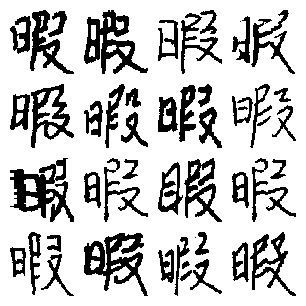 暇暇暇暇
暇暇暇暇
暇暇暇暇
暇暇暇暇